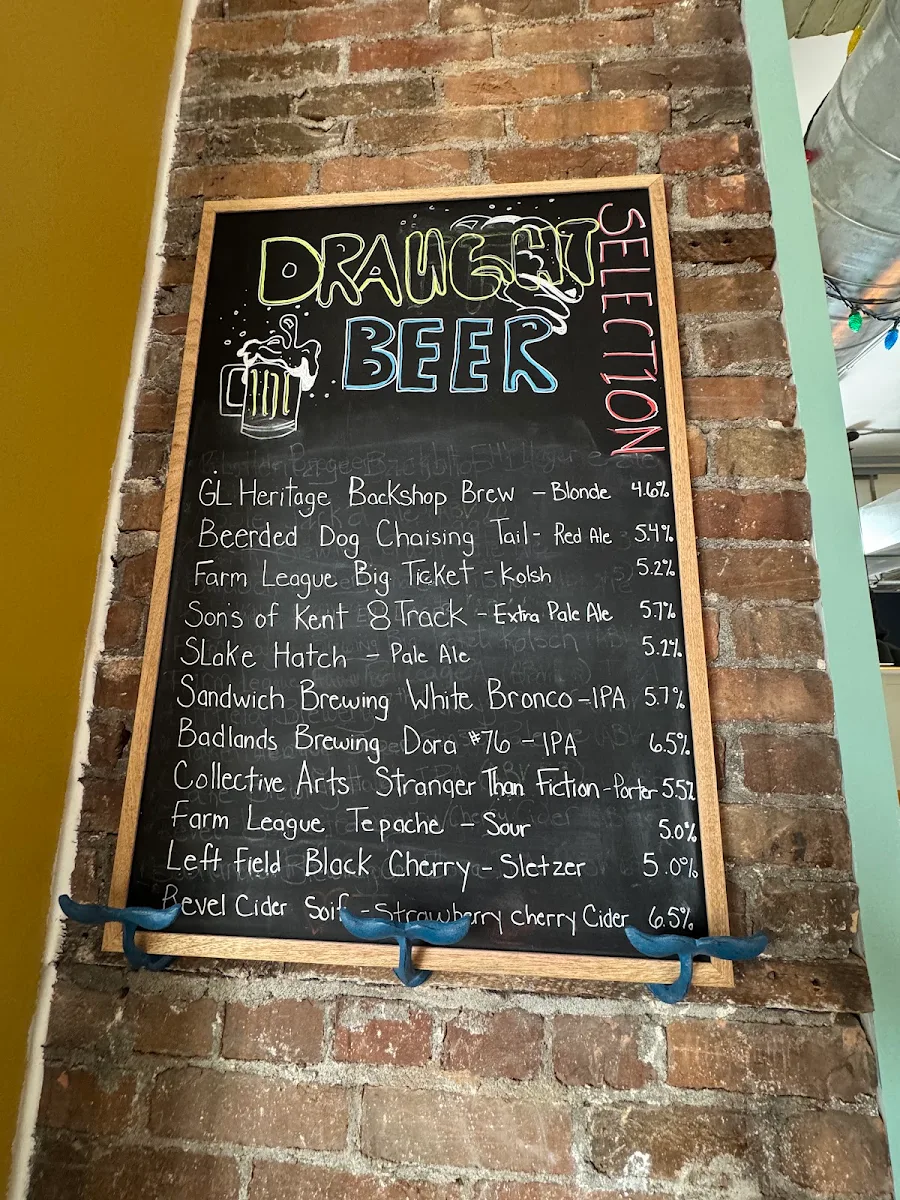 DRAUGHT
BEER
SELECTION
GL Heritage Backshop Brew - Blonde 4.6%
Beerded Dog Chaising Tail - Red Ale 5.4%
Farm League Big Ticket - Kolsh 5.2%
Son's of Kent 8 Track - Extra Pale Ale 5.7%
SLake Hatch - Pale Ale 5.2%
Sandwich Brewing White Bronco - IPA 5.7%
Badlands Brewing Dora #76 - IPA 6.5%
Collective Arts Stranger Than Fiction - Porter 5.5%
Farm League Tepache - Sour 5.0%
Left Field Black Cherry - Sletzer 5.0%
Revel Cider Soif - Strawberry cherry Cider 6.5%